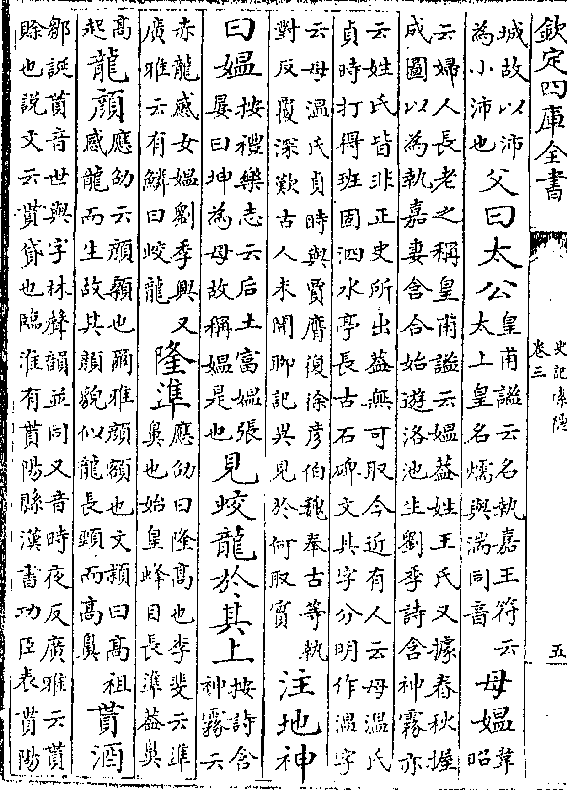 欽定四庫全書
史記索隱
卷三
五
城故以沛
為小沛也
父曰太公
皇甫謐云名執嘉王符云
太上皇名煓與湍同音
母媼
韋
昭
云婦人長老之稱皇甫謐云媼蓋姓王氏又據春秋握
成圖以為執嘉妻含合始遊洛池生劉季詩含神霧亦
云姓氏皆非正史所出蓋無可取今近有人云母溫氏
貞時打得班固泗水亭長古石碑文其字分明作溫字
云母溫氏貞時與賈膺復徐彥伯魏奉古等執
對反覆深歎古人未聞聊記異見於何取實
注地神
曰媼
按禮樂志云后土富媼張
晏曰坤為母故稱媼是也
見蛟龍於其上
按詩含
神霧云
赤龍感女媼劉季興又
廣雅云有鱗曰蛟龍
隆準
應劭曰隆高也李斐云準
鼻也始皇蜂目長準蓋鼻
高
起
龍顔
應劭云顔額也爾雅顔額也文穎曰高祖
感龍而生故其顔貌似龍長頸而高鼻
貰酒
鄒誕貰音世與字林聲韻並同又音時夜反廣雅云貰
賖也說文云貰貸也臨淮有貰陽縣漢書功臣表貰陽